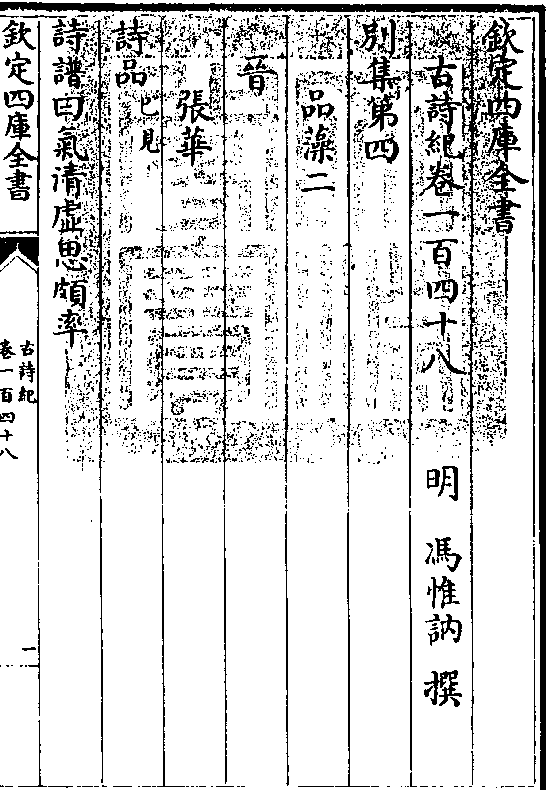 欽定四庫全書
古詩紀卷一百四十八
明 馮惟訥 撰
別集第四
品藻二
晉
張華
詩品已見
詩譜曰氣清虛思頗率
欽定四庫全書
古詩紀
卷一百四十八
一